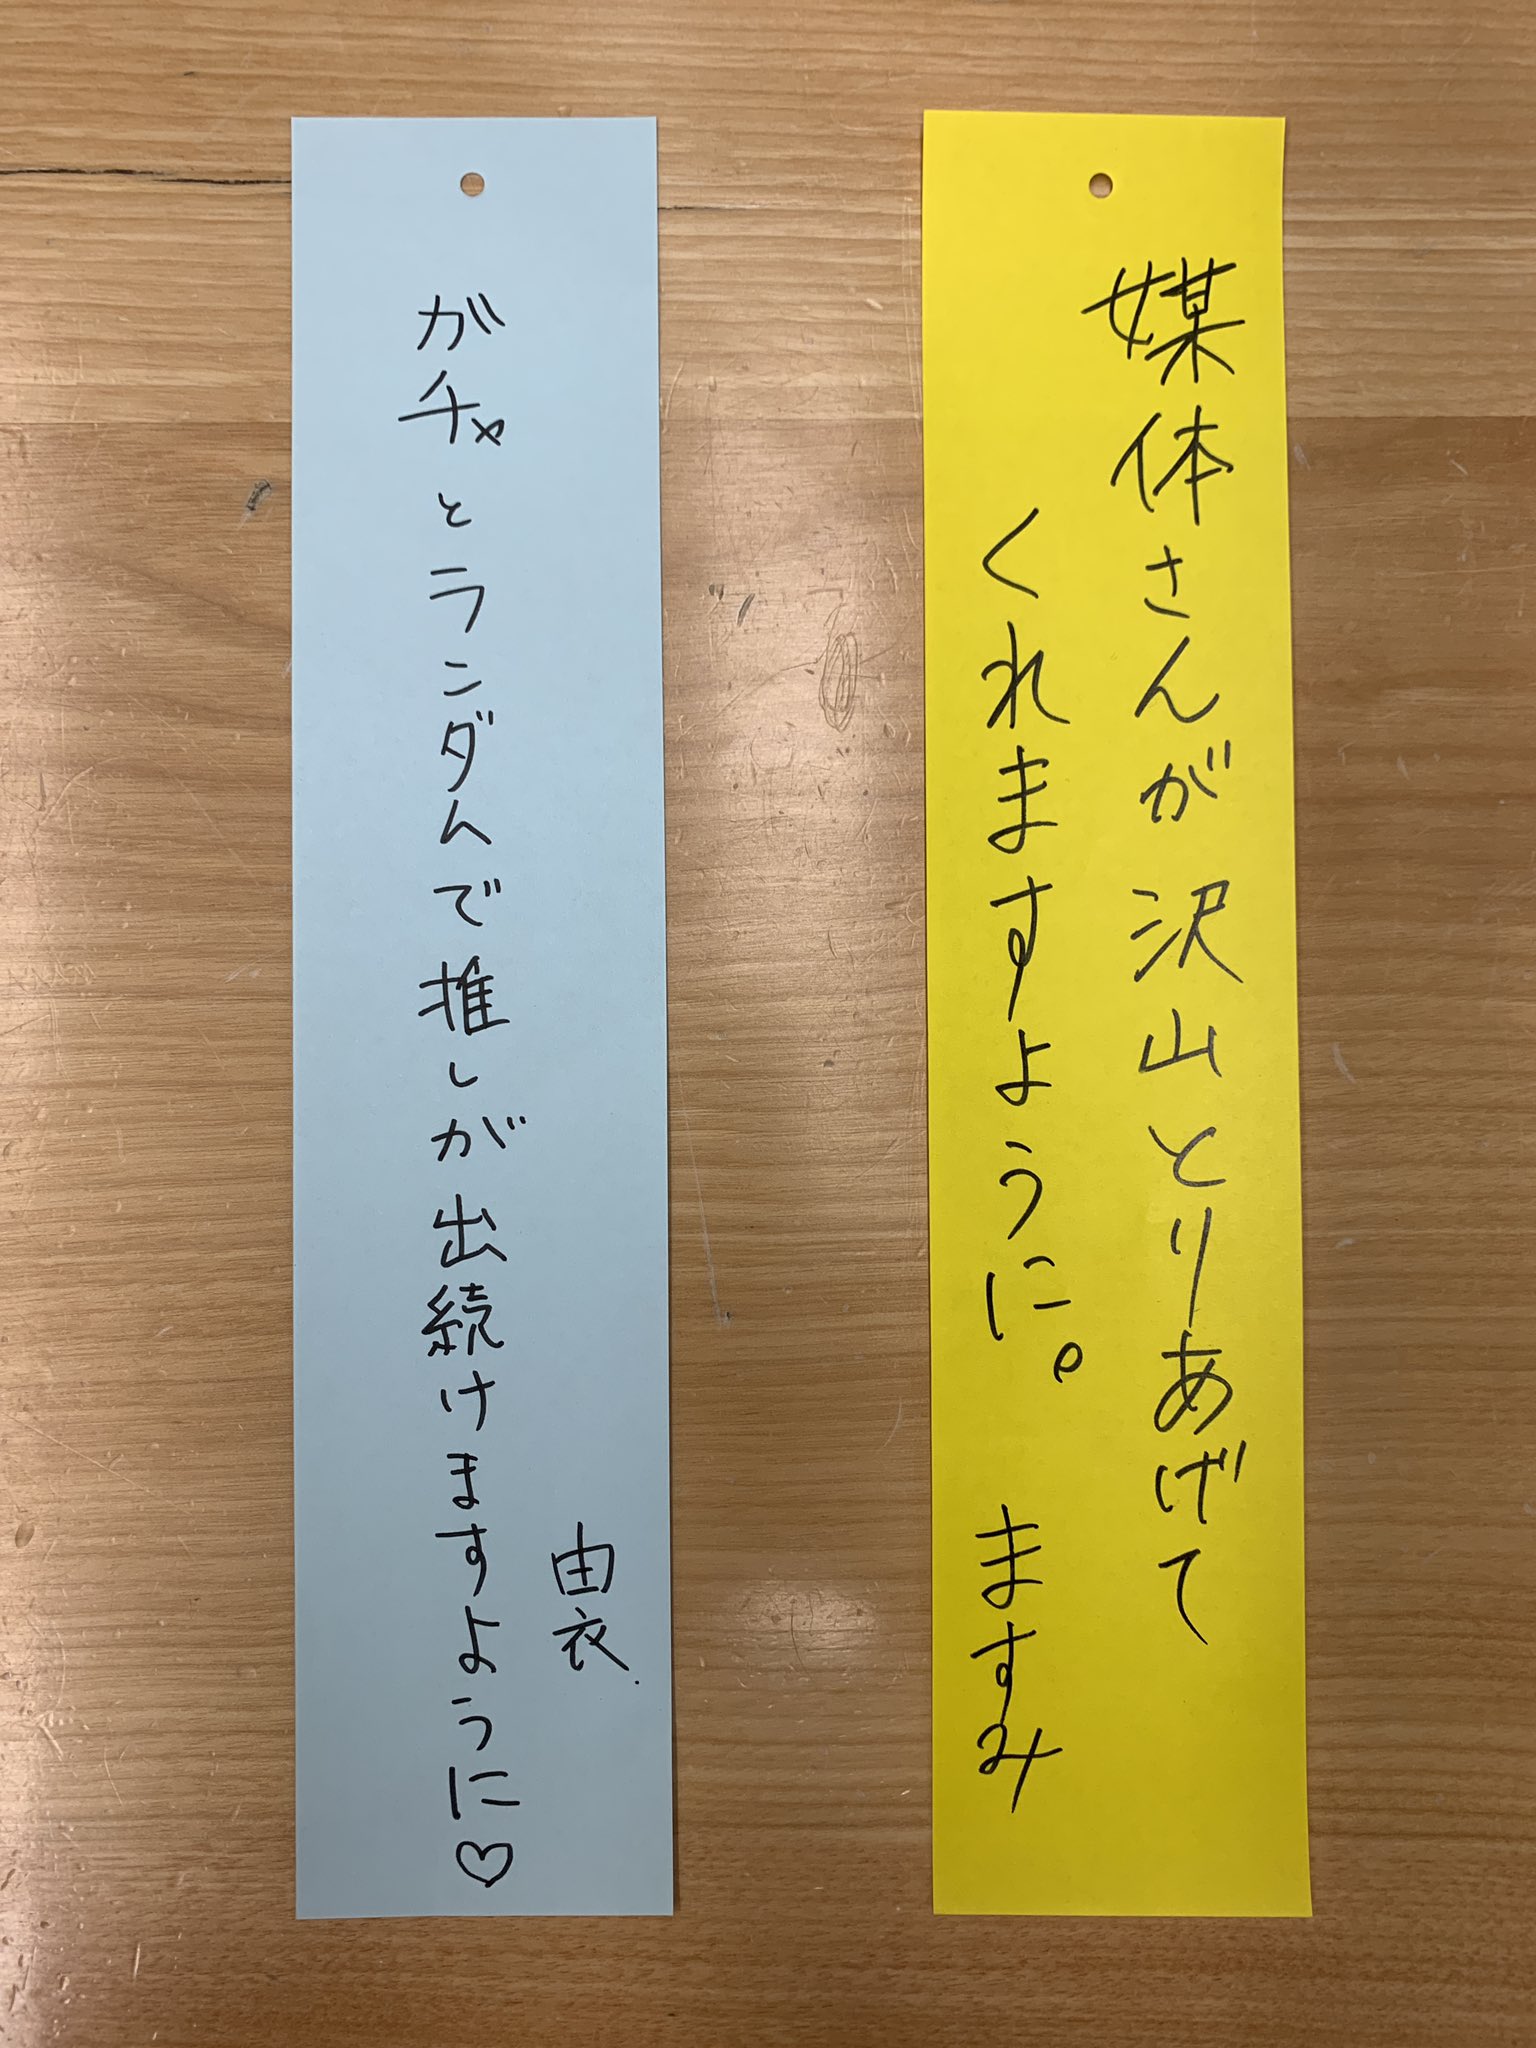 媒体さんが沢山とりあげて
くれますように。 ますみ
ガチャとランダムで推しが出続けますように♡
由衣